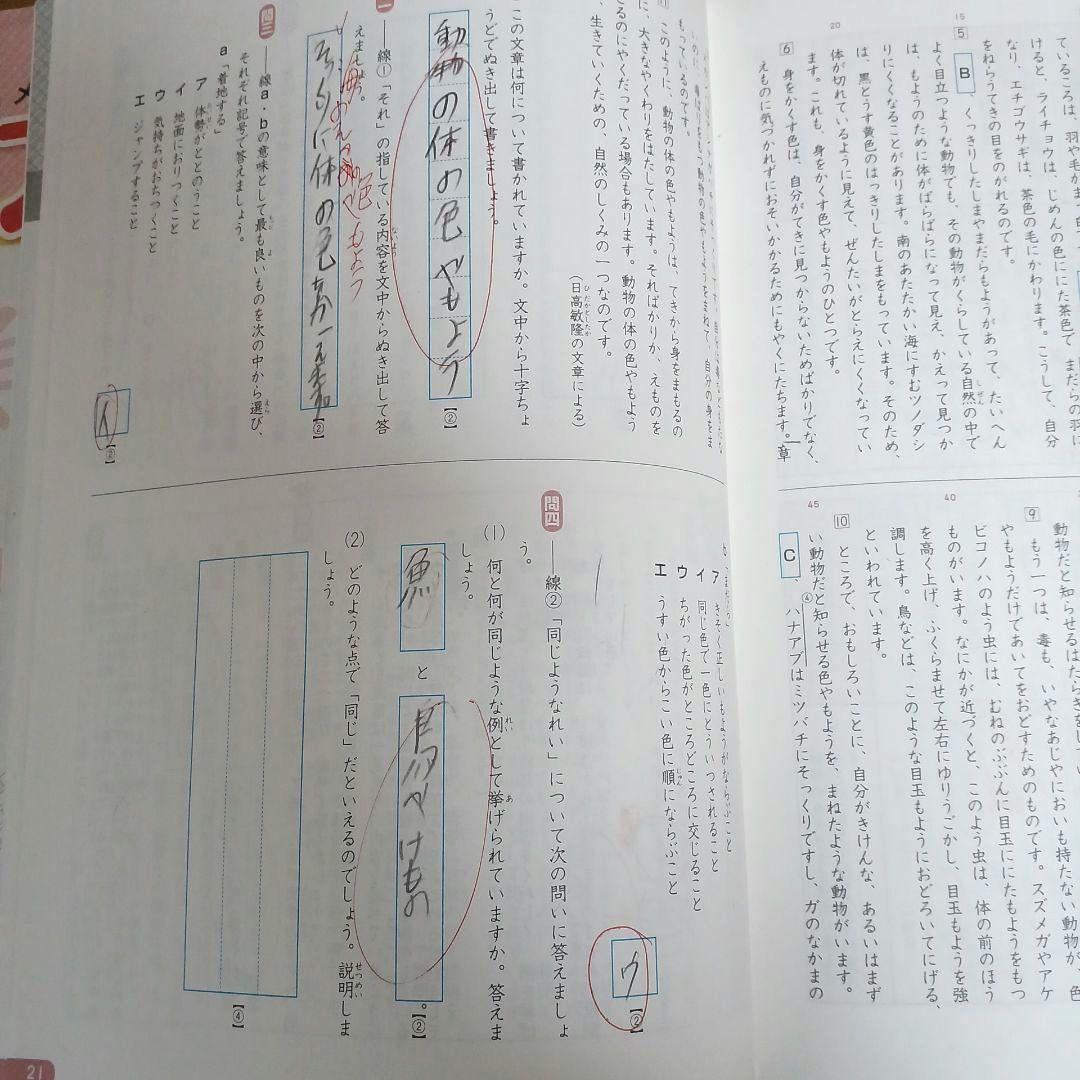 15
20
5 B くっきりしたしまやまだらもようがあって、たいへん
よく目立つような動物でも、その動物がくらしている自然の中で
は、もようのために体がばらばらになって見え、かえって見つか
りにくくなることがあります。南のあたたかい海にすむツノダシ
は、黒とうす黄色のはっきりしたしまをもっています。そのため、
体が切れているように見えて、ぜんたいがとらえにくくなってい
ます。これも、身をかくす色やもようのひとつです。
6 身をかくす色は、自分がてきに見つからないためばかりでなく、
えものに気づかれずにおそいかかるためにもやくにたちます。
けると、ライチョウは、じめんの色ににた茶色で
なり、エチゴウサギは、茶色の毛にかわります。こうして、自分
をねらうてきの目をのがれるのです。
40
45
動物だと知らせるはたらきを
9 もう一つは、毒も、いやなあじやにおいも持たない動物が、色
やもようだけであいてをおどすためのものです。スズメガやアケ
ビコノハのよう虫には、むねのぶぶんに目玉ににたもようをもつ
ものがいます。なにかが近づくと、このよう虫は、体の前のほう
を高く上げ、ふくらませて左右にゆりうごかし、目玉もようを強
調します。鳥などは、このような目玉もようにおどろいてにげる、
といわれています。
10 ところで、おもしろいことに、自分がきけんな、あるいはまず
い動物だと知らせる色やもようを、まねたような動物がいます。
C ④ハナアブはミツバチにそっくりですし、ガのなかまの
もっているのです。
11 このように、動物の体の色やもようは、てきから身をまもるの
に、大きなやくわりをはたしています。そればかりか、えものを
とるのにやくだっている場合もあります。動物の体の色やもよう
は、生きていくための、自然のしくみの一つなのです。
（日高敏隆の文章による）
ひだかとしたか
この文章は何について書かれていますか。文中から十字ちょ
うどでぬき出して書きましょう。
動物の体の色やもよう
【②】
――線①「それ」の指している内容を文中からぬき出して答
えましょう。
【②】
問三 ――線a・bの意味として最も良いものを次の中から選び、
それぞれ記号で答えましょう。
a「着地する」
ア 体勢がととのうこと
イ 地面におりつくこと
ウ 気持ちがおちつくこと
エ ジャンプすること
イ
【②】
ア きそく正しいもようがならぶこと
イ 同じ色で一色にとういつされること
ウ ちがった色がところどころに交じること
エ うすい色からこい色に順にならぶこと
ウ
【②】
問四 ――線②「同じようなれい」について次の問いに答えましょ
う。
(1) 何と何が同じような例として挙げられていますか。答えま
しょう。
魚 と 鳥やけもの 。
【②】
(2) どのような点で「同じ」だといえるのでしょう。説明しま
しょう。
【④】
21